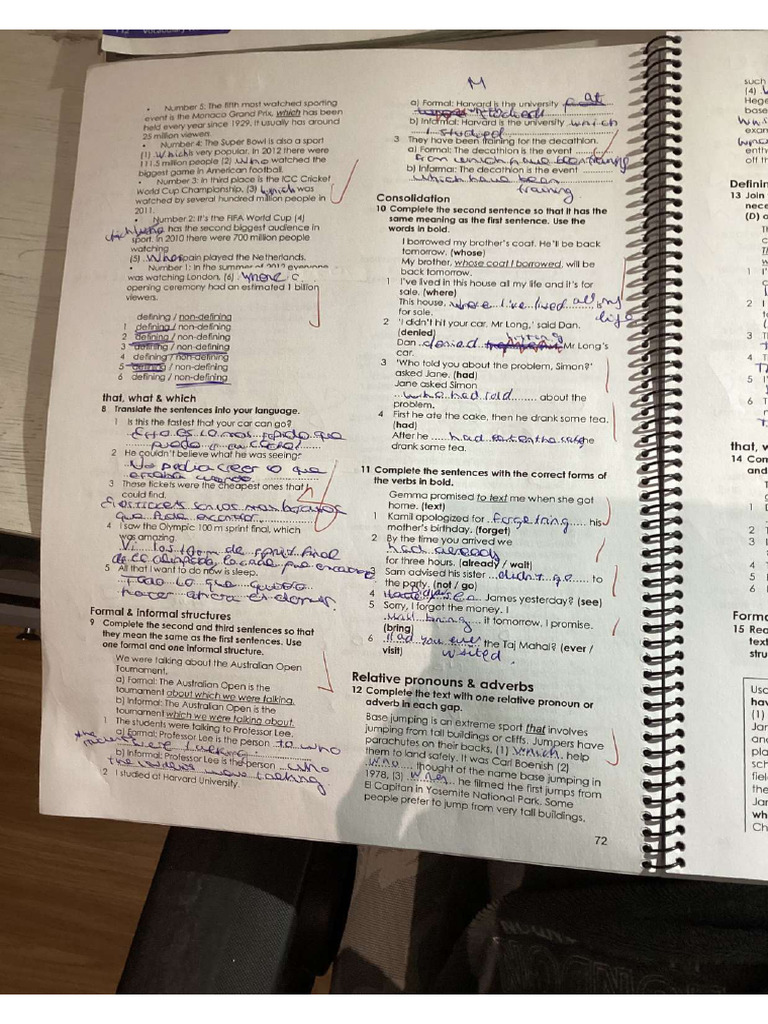 112 Vocabulary
• Number 5: The fifth most watched sporting
event is the Monaco Grand Prix, which has been
held every year since 1929. It usually has around
25 million viewers.
• Number 4: The Super Bowl is also a sport
(1) which is very popular. In 2012 there were
111.5 million people (2) who watched the
biggest game in American football.
• Number 3: In third place is the ICC Cricket
World Cup Championship, (3) which was
watched by several hundred million people in
2011.
• Number 2: It's the FIFA World Cup (4)
has the second biggest audience in
sport. In 2010 there were 700 million people
watching
(5) when Spain played the Netherlands.
• Number 1: In the summer of 2012 everyone
was watching London. (6) whose
opening ceremony had an estimated 1 billion
viewers.
defining / non-defining
1 defining / non-defining
2 defining / non-defining
3 defining / non-defining
4 defining / non-defining
5 defining / non-defining
6 defining / non-defining
that, what & which
8 Translate the sentences into your language.
1 Is this the fastest that your car can go?
Esto es lo mas rapido que
puede
2 He couldn't believe what he was seeing.
No podia creer lo que
estaba viendo
3 These tickets were the cheapest ones that I
could find.
que pude encontrar
4 I saw the Olympic 100 m sprint final, which
was amazing.
Vi los 100m de sprint final
5 All that I want to do now is sleep.
Todo lo que quiero
hacer ahora es dormir.
Formal & informal structures
9 Complete the second and third sentences so that
they mean the same as the first sentences. Use
one formal and one informal structure.
We were talking about the Australian Open
Tournament.
a) Formal: The Australian Open is the
tournament about which we were talking.
b) Informal: The Australian Open is the
tournament which we were talking about.
1 The students were talking to Professor Lee.
a) Formal: Professor Lee is the person to who
the were talking
b) Informal: Professor Lee is the person who
the were talking
2 I studied at Harvard University.
M
a) Formal: Harvard is the university at
I studied
b) Informal: Harvard is the university which
I studied
3 They have been training for the decathlon.
a) Formal: The decathlon is the event
from which have been training
b) Informal: The decathlon is the event
which have been
training
Consolidation
10 Complete the second sentence so that it has the
same meaning as the first sentence. Use the
words in bold.
I borrowed my brother's coat. He'll be back
tomorrow. (whose)
My brother, whose coat I borrowed, will be
back tomorrow.
1 I've lived in this house all my life and it's for
sale. (where)
This house, where I've lived all my
life
for sale.
2 'I didn't hit your car, Mr Long,' said Dan.
(denied)
Dan denied hitting Mr Long's
car.
3 'Who told you about the problem, Simon?'
asked Jane. (had)
Jane asked Simon
who had told about the
problem.
4 First he ate the cake, then he drank some tea.
(had)
After he had eaten the cake he
drank some tea.
11 Complete the sentences with the correct forms of
the verbs in bold.
Gemma promised to text me when she got
home. (text)
1 Kamil apologized for forgetting his
mother's birthday. (forget)
2 By the time you arrived we
had already
for three hours. (already / wait)
3 Sam advised his sister didn't go to
the party. (not / go)
4 James yesterday? (see)
5 Sorry, I forgot the money. I
will bring it tomorrow, I promise.
(bring)
6 Had you ever the Taj Mahal? (ever /
visit) visited.
Relative pronouns & adverbs
12 Complete the text with one relative pronoun or
adverb in each gap.
Base jumping is an extreme sport that involves
jumping from tall buildings or cliffs. Jumpers have
parachutes on their backs, (1) which help
them to land safely. It was Carl Boenish (2)
who thought of the name base jumping in
1978, (3) when he filmed the first jumps from
El Capitan in Yosemite National Park. Some
people prefer to jump from very tall buildings,
72
such
(4)
Hege
base
exam
enth
off th
Definin
13 Join
nece
(D) o
1 I'
2 I
3 T
4
5 I
6 T
that, w
14 Com
and
1
2
3
4
5
6
Forma
15 Rea
text
stru
Usa
hav
(1)
Jar
and
pla
sch
fiel
the
Jar
wh
Ch